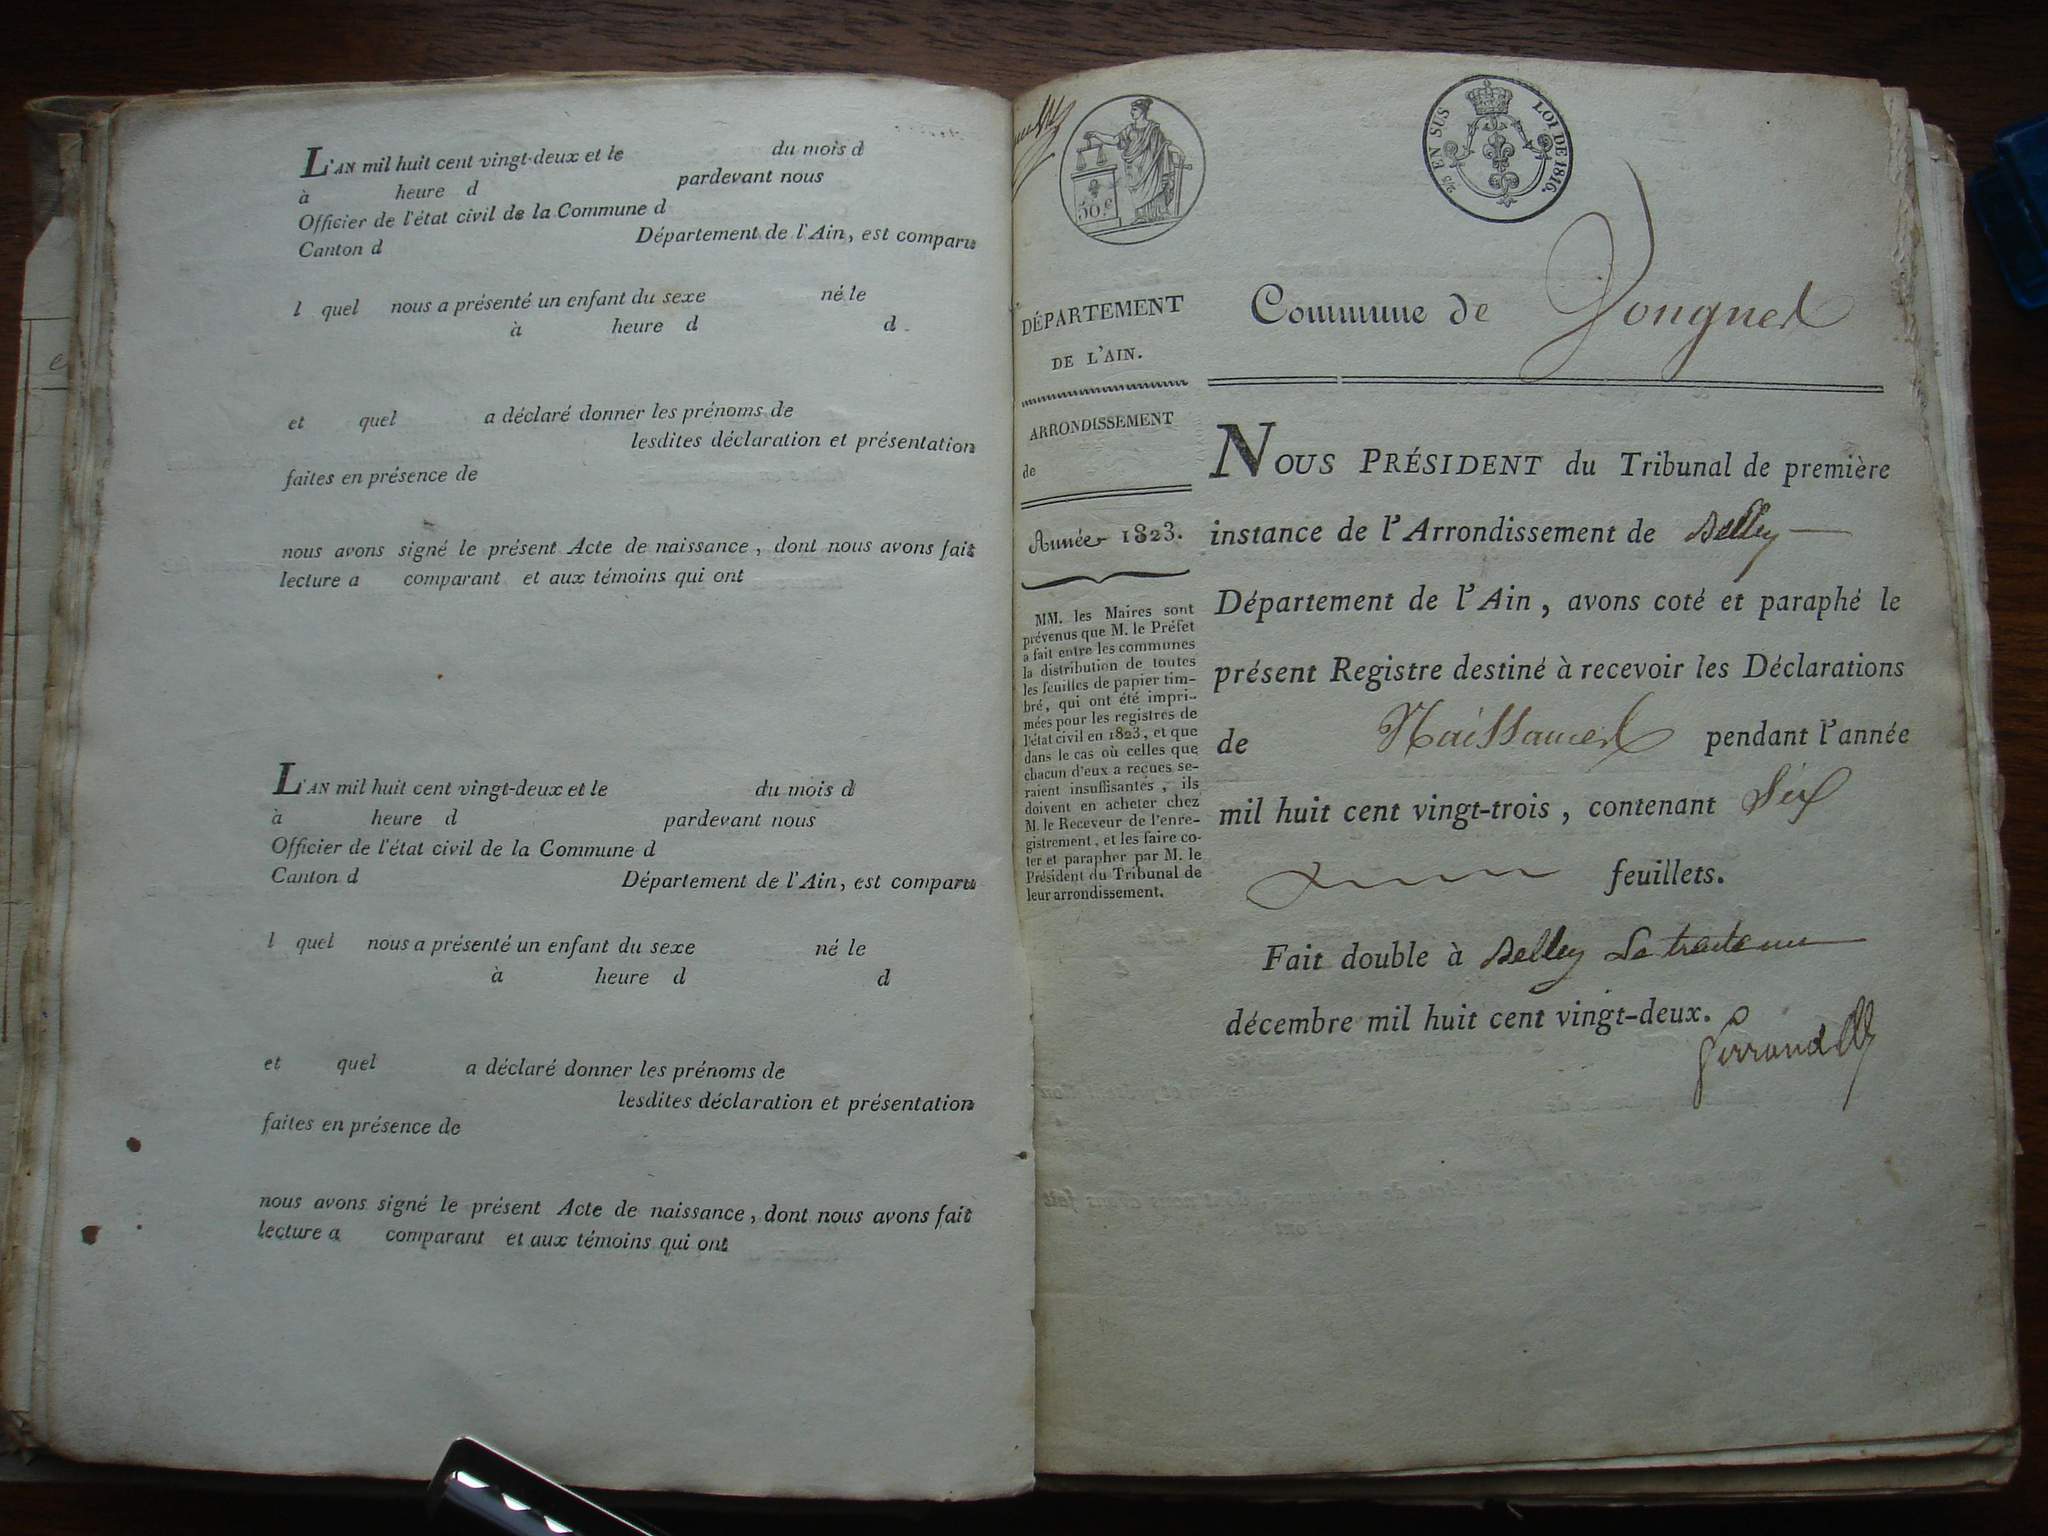 L'AN mil huit cent vingt-deux et le du mois d
à heure d pardevant nous
Officier de l'état civil de la Commune d
Canton d Département de l'Ain, est comparu
l quel nous a présenté un enfant du sexe né le
à heure d d
et quel a déclaré donner les prénoms de
lesdites déclaration et présentation
faites en présence de
nous avons signé le présent Acte de naissance, dont nous avons fait
lecture a comparant et aux témoins qui ont
L'AN mil huit cent vingt-deux et le du mois d
à heure d pardevant nous
Officier de l'état civil de la Commune d
Canton d Département de l'Ain, est comparu
l quel nous a présenté un enfant du sexe né le
à heure d d
et quel a déclaré donner les prénoms de
lesdites déclaration et présentation
faites en présence de
nous avons signé le présent Acte de naissance, dont nous avons fait
lecture a comparant et aux témoins qui ont
50.c
EN SUS LOI DE 1816.
DÉPARTEMENT
DE L'AIN.
ARRONDISSEMENT
de
Année 1823.
MM. les Maires sont
prévenus que M. le Préfet
a fait entre les communes
la distribution de toutes
les feuilles de papier tim-
bré, qui ont été impri-
mées pour les registres de
l'état civil en 1823, et que
dans le cas où celles que
chacun d'eux a reçues se-
raient insuffisantes, ils
doivent en acheter chez
M. le Receveur de l'enre-
gistrement, et les faire co-
ter et parapher par M. le
Président du Tribunal de
leur arrondissement.
Commune de Songieu
NOUS PRÉSIDENT du Tribunal de première
instance de l'Arrondissement de Belley
Département de l'Ain, avons coté et paraphé le
présent Registre destiné à recevoir les Déclarations
de Naissances pendant l'année
mil huit cent vingt-trois, contenant Six
feuillets.
Fait double à Belley Le trente un
décembre mil huit cent vingt-deux.